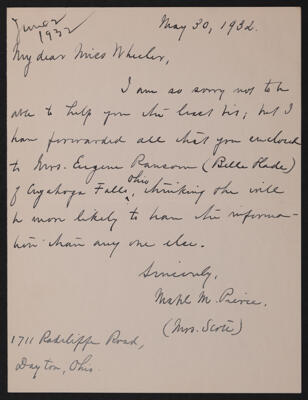 June 2
1932
May 30, 1932.
My dear Miss Wheeler,
I am so sorry not to be
able to help you the least bit; but I
have forwarded all that you enclosed
to Mrs. Eugene Ransom (Belle Slade)
of Cuyahoga Falls, Ohio, thinking she will
be more likely to have the informa-
tion than any one else.
Sincerely,
Mabel M. Pierce.
(Mrs. Scott)
1711 Radcliffe Road,
Dayton, Ohio.